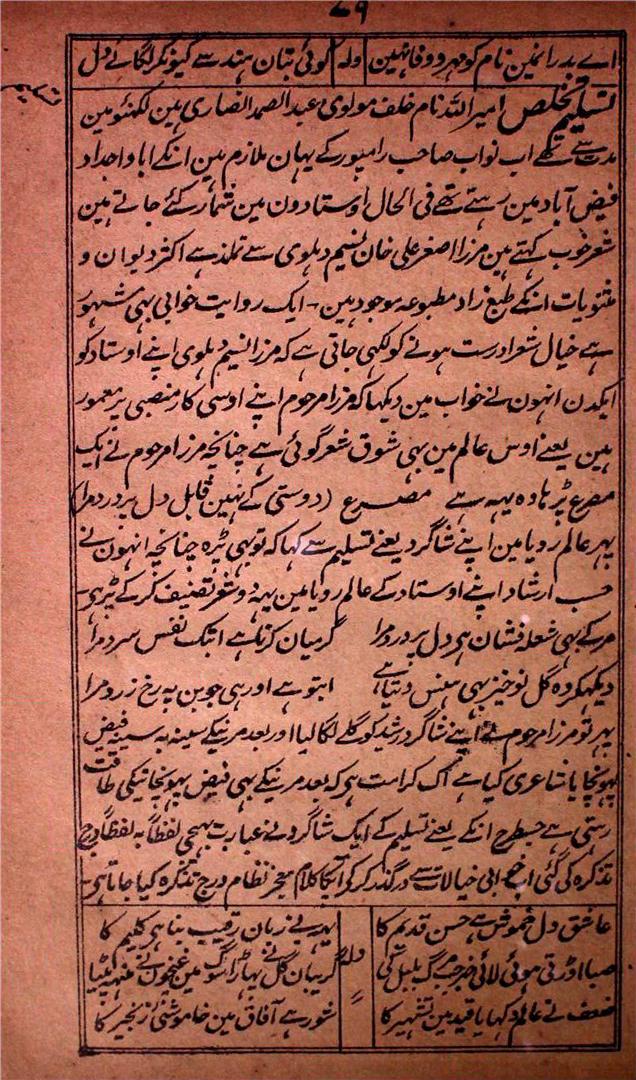 ۷۹
اے بدر انمین نام کو مہر و وفا نہین ولہ کوئی بتان ہند سے کیونکر لگائے دل
تسلیم
تسلیم تخلص امیر اللہ نام خلف مولوی عبد الصمد انصاری ہین لکھنئو مین
مدت سے تھے اب نواب صاحب رامپور کے یہان ملازم ہین انکے ابا و اجداد
فیض آباد مین رہتے تھے فی الحال اوستادون مین شمار کئے جاتے ہین
شعر خوب کہتے ہین مرزا اصغر علی خان نسیم دہلوی سے تلمذ ہے اکثر دیوان و
مثنویات انکے طبع زاد مطبوعہ موجود ہین - ایک روایت خوابی بہی مشہور
ہے خیال شعرا درست ہونے کو لکہی جاتی ہے کہ مرزا نسیم دہلوی اپنے اوستاد کو
ایکدن انہون نے خواب مین دیکہا کہ مرزا مرحوم اپنے اوسی کار منصبی پر معمور
ہین یعنے اوس عالم مین بہی شوق شعر گوئی ہے چنانچہ مرزا مرحوم نے ایک
مصرع پڑہا وہ یہہ ہے مصرع (دوستی کے نہین قابل دل پر درد مرا)
پہر عالم رویا مین اپنے شاگرد یعنے تسلیم سے کہا کہ تو بہی پڑہ چنانچہ انہون نے
حسب ارشاد اپنے اوستاد کے عالم رویا مین یہہ دو شعر تصنیف کر کے پڑہی -
مر کے بہی شعلہ فشان ہی دل پر درد مرا گرمیان کرتا ہے ابتک نفس سرد مرا
دیکہکر وہ گل نوخیز بہی ہنس دیتا ہے ابتو ہے اور ہی جوبن پہ رخ زرد مرا
پہر تو مرزا مرحوم نے اپنے شاگرد رشید کو گلے لگا لیا اور بعد مرنیکے سینہ بہ سینہ فیض
پہونچایا شاعری کیا ہے اک کرامت ہی کہ بعد مرنیکے بہی فیض پہونچانیکی طاقت
رہتی ہے جسطرح انکے یعنے تسلیم کے ایک شاگرد نے عبارت بہیجی لفظاً بہ لفظاً درج
تذکرہ کی گئی اب خیالات سے درگذر کر کو آپکا کلام معجز نظام درج تذکرہ کیا جاتا ہی -
عاشق دل خموش ہے حسن قدیم کا یہہ بے زبان رقیب بنا ہی کلیم کا
صبا اوڑتی ہوئی لائی خبر جب مرگ بلبل کی ولہ گریبان گل نے پہاڑا سوگ مین غنچون نے منہہ پیٹا
ضعف نے عالم دکہایا قید مین تشہیر کا ؍؍ شور ہے آفاق مین خاموشئ زنجیر کا